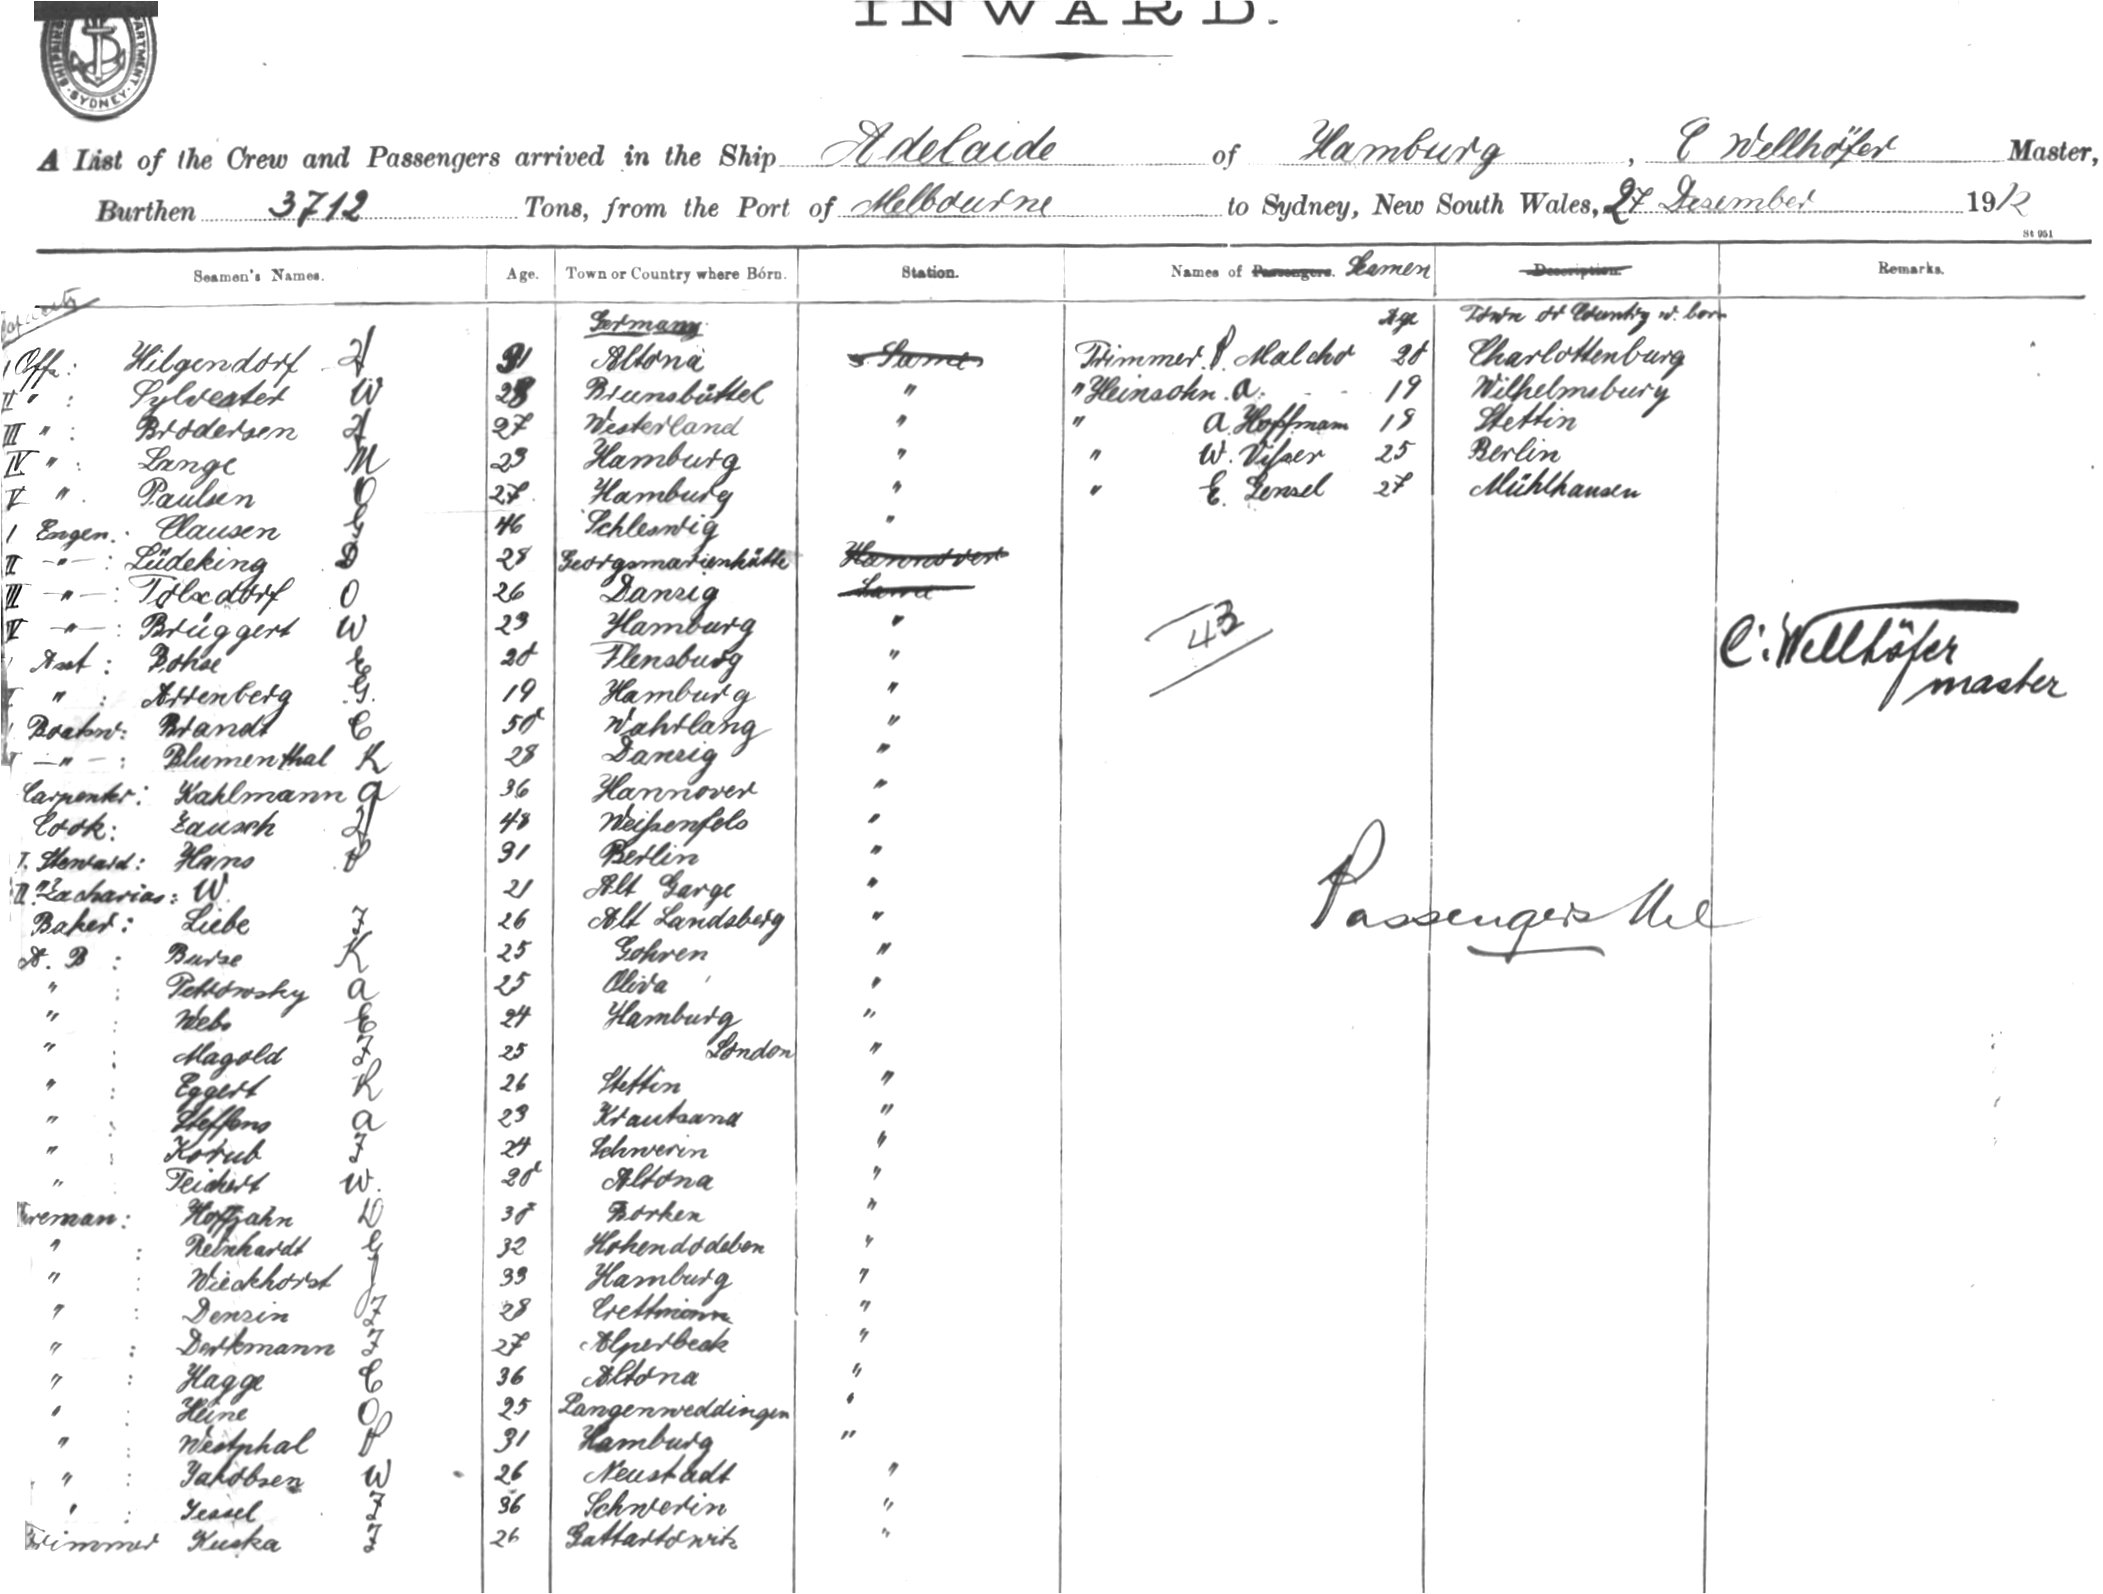 INWARD.
SYDNEY
A List of the Crew and Passengers arrived in the Ship Adelaide of Hamburg, C Wellhöfer Master,
Burthen 3712 Tons, from the Port of Melbourne to Sydney, New South Wales, 27 Desember 1912
St 951
Seamen's Names. Age. Town or Country where Born. Station. Names of Passengers. Seamen Description Remarks.
Germany Age Town or Country w. born
I Offz: Hilgendorf H 31 Altona Same Trimmer. P. Malcho 20 Charlottenburg
II " : Sylvester W 28 Brunsbüttel " " Heinsohn. A. 19 Wilhelmsburg
III " : Brodersen H 27 Westerland " " A. Hoffmann 19 Stettin
IV " : Lange M 23 Hamburg " " W. Visser 25 Berlin
V " . Paulsen O 27 Hamburg " " E. Gensel 27 Mühlhausen
I Engen.: Clausen G 46 Schleswig "
II -"- : Lüdeking D 28 Georgsmarienhütte Hannover
III -"- : Tolxdorf O 26 Danzig Same
IV -"- : Brüggert W 23 Hamburg "
43
I Asst : Bohse E 20 Flensburg "
C. Wellhöfer
master
II " : Arrenberg G. 19 Hamburg "
I Boatsw: Brandt C 50 Wahrlang "
I -"- : Blumenthal K 28 Danzig "
Carpenter: Kahlmann A 36 Hannover "
Cook: Zausch H 48 Weißenfels "
I. Steward: Hans P 31 Berlin "
II " Zacharias: W. 21 Alt Garge "
Baker: Liebe F 26 Alt Landsberg "
Passengers Nil
A. B : Burse K 25 Gohren "
" : Petrowsky A 25 Oliva "
" : Webs E 24 Hamburg "
" : Magold F 25 London "
" : Eggert K 26 Stettin "
" : Steffens A 23 Krautsand "
" : Korub F 24 Schwerin "
" Teichert W. 20 Altona "
Fireman: Hoffjahn D 30 Borken "
" : Reinhardt G 32 Hohendodeben "
" : Wieckhorst J 33 Hamburg "
" : Denzin F 28 "
" : Derkmann F 27 Alperbeck "
" : Hagge C 36 Altona "
" : Heine O 25 Langenweddingen "
" : Westphal P 31 Hamburg "
" : Jakobsen W 26 Neustadt "
" : Jessel F 36 Schwerin "
Trimmer Kuska F 26 Gattartowitz "